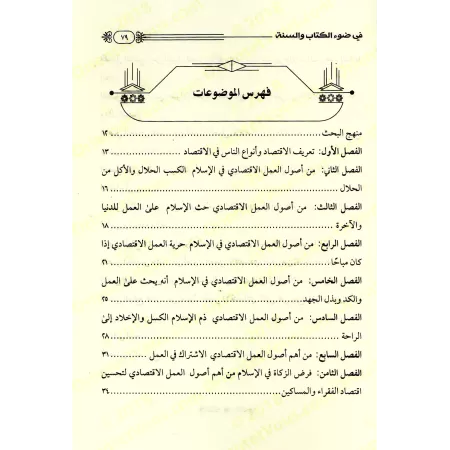 في ضوء الكتاب والسنة ٧٩
فهرس الموضوعات
منهج البحث ................ ١٢
الفصل الأول: تعريف الاقتصاد وأنواع الناس في الاقتصاد ................ ١٣
الفصل الثاني: من أصول العمل الاقتصادي في الإسلام الكسب الحلال والأكل من
الحلال ................ ١٦
الفصل الثالث: من أصول العمل الاقتصادي حث الإسلام على العمل للدنيا
والآخرة ................ ١٨
الفصل الرابع: من أصول العمل الاقتصادي في الإسلام حرية العمل الاقتصادي إذا
كان مباحًا ................ ٢١
الفصل الخامس: من أصول العمل الاقتصادي في الإسلام أنه يحث على العمل
والكد وبذل الجهد ................ ٢٥
الفصل السادس: من أصول العمل الاقتصادي ذم الإسلام الكسل والإخلاد إلى
الراحة ................ ٢٨
الفصل السابع: من أهم أصول العمل الاقتصادي الاشتراك في العمل ............ ٣١
الفصل الثامن: فرض الزكاة في الإسلام من أهم أصول العمل الاقتصادي لتحسين
اقتصاد الفقراء والمساكين ................ ٣٤